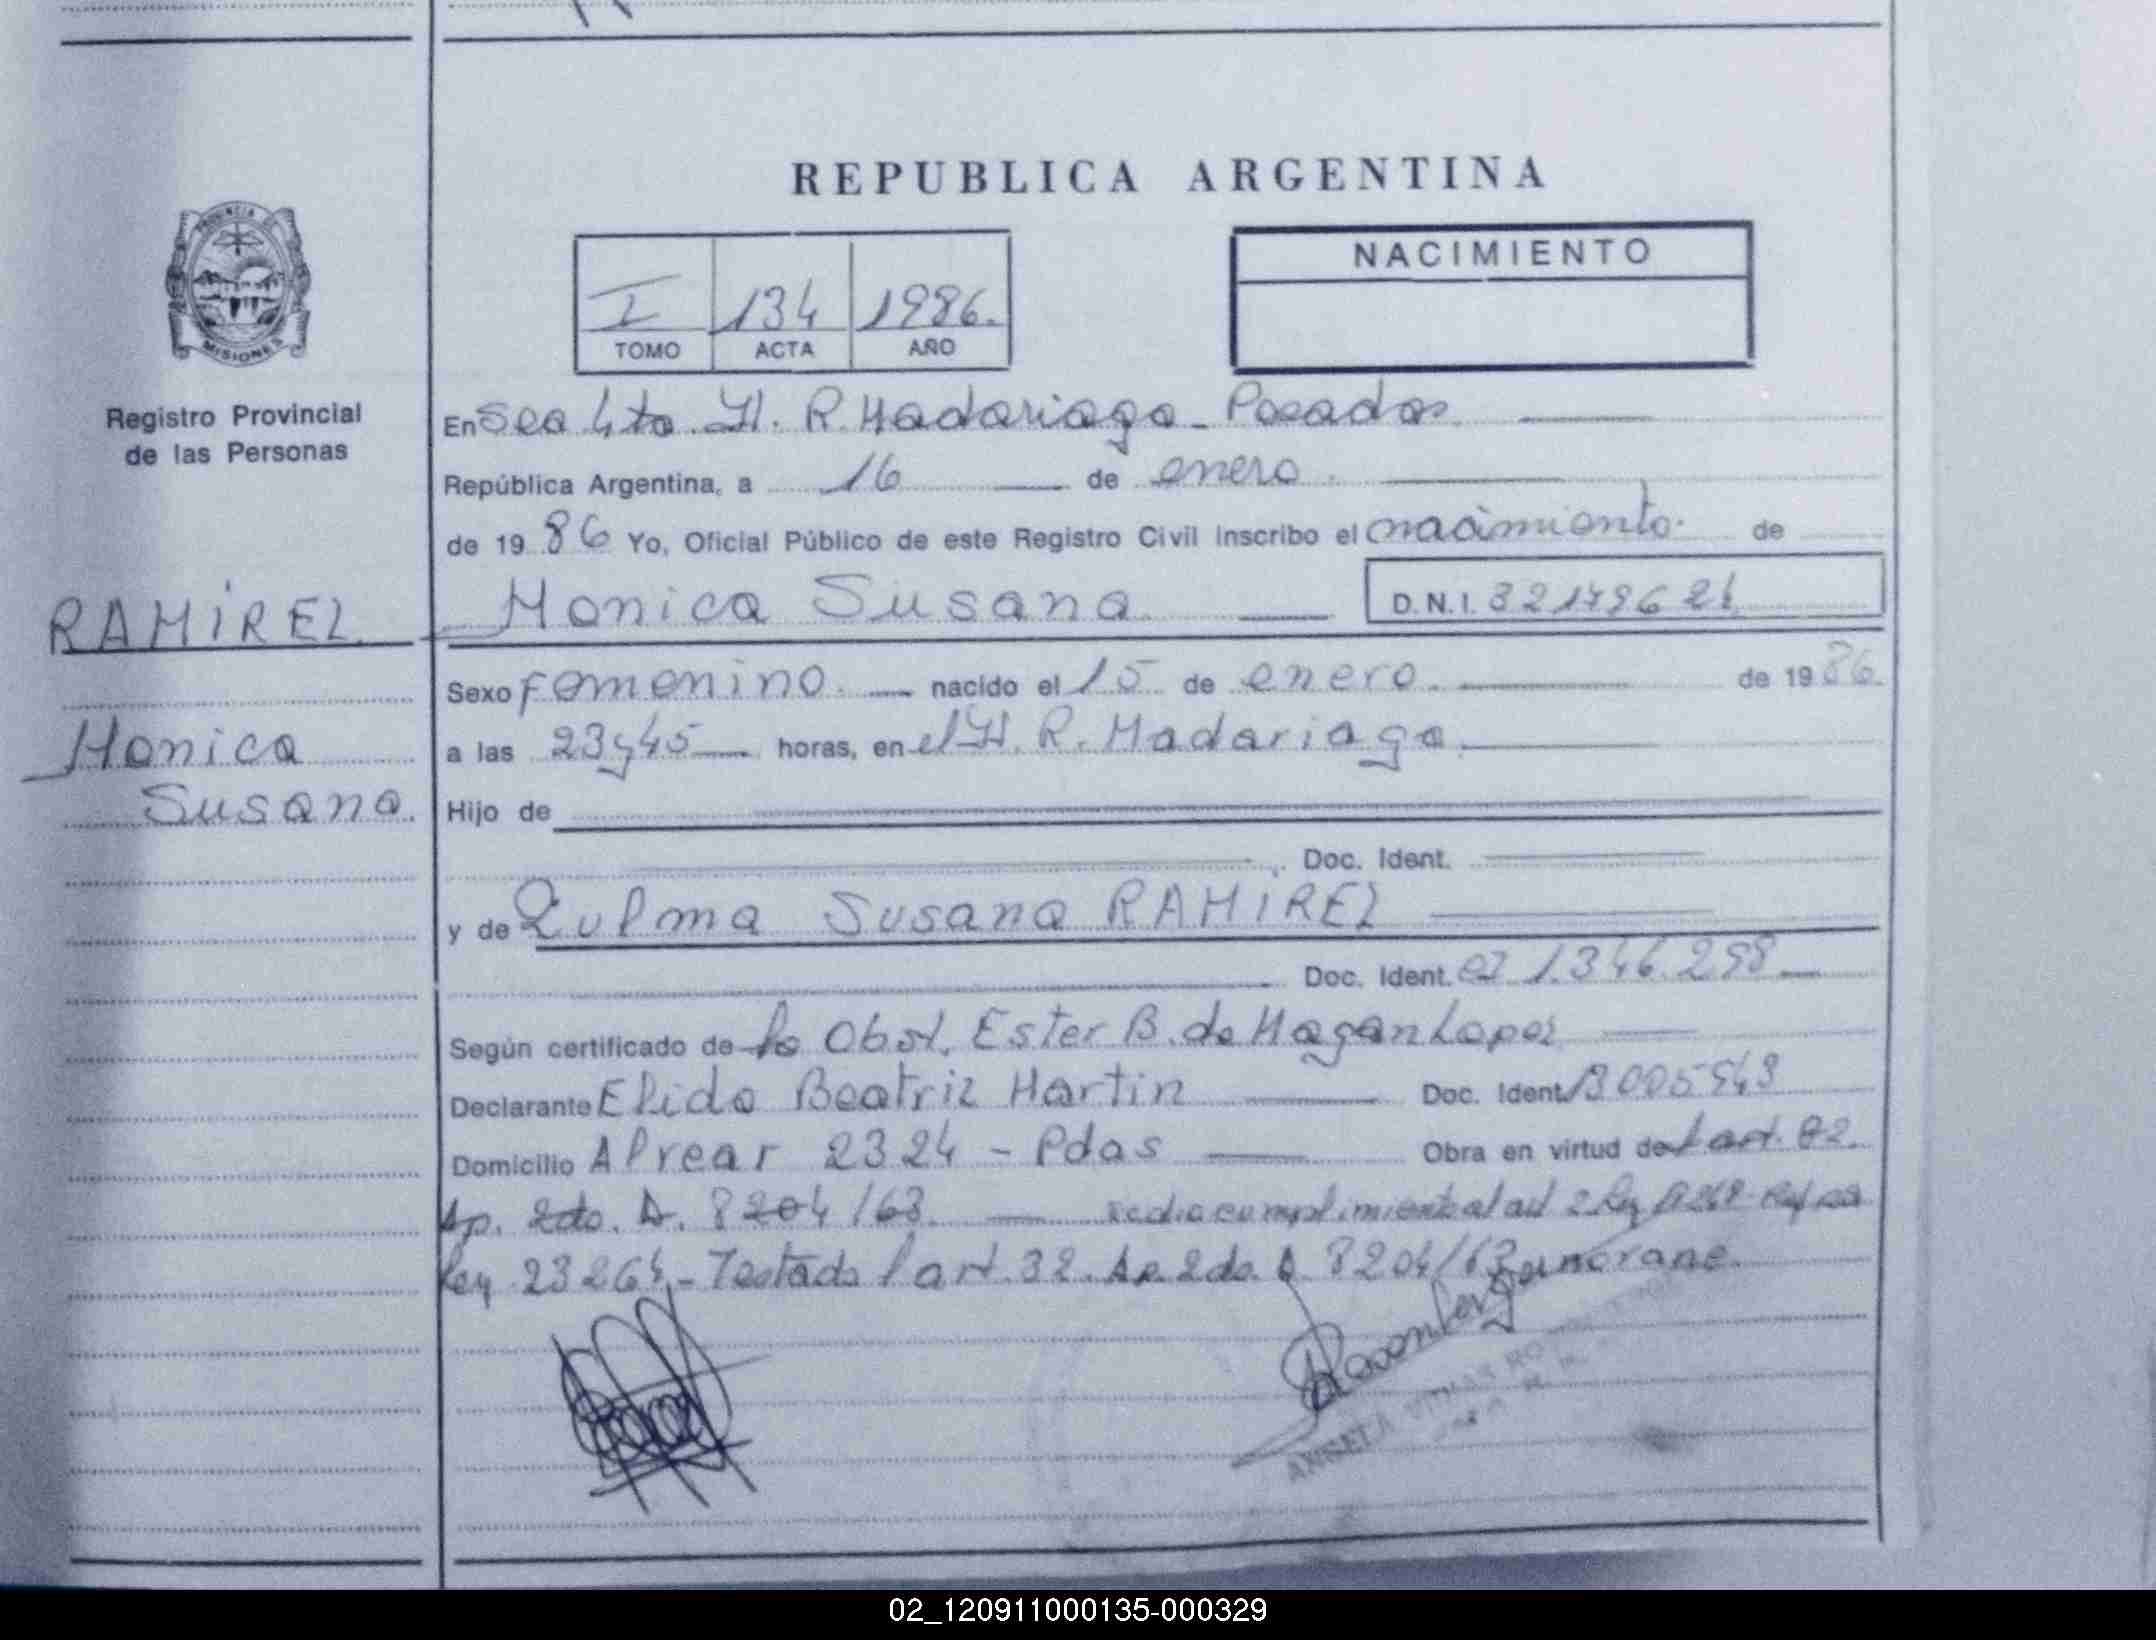 REPUBLICA ARGENTINA
PROVINCIA DE
MISIONES
Registro Provincial
de las Personas
I 134 1986.
TOMO ACTA AÑO
NACIMIENTO
En Sec 4ta. H. R. Madariaga - Posadas
República Argentina, a 16 de enero.
de 19 86 Yo, Oficial Público de este Registro Civil inscribo el nacimiento. de
RAMIREZ Monica Susana D.N.I.
Sexo Femenino. nacido el 15 de enero. de 19 86.
Monica
Susana.
a las 23 y 45 horas, en el H. R. Madariaga.
Hijo de
Doc. Ident.
y de Zulma Susana RAMIREZ
Doc. Ident. 1.346.298
Según certificado de la Obst. Ester B. de Lopez
Declarante Elida Beatriz Martin Doc. Ident.
Domicilio Alvear 2324 - Pdas Obra en virtud del art. 32.
Ap. 2do. D. 8204/63. se dio cumplimiento al art 2 Ley
Ley 23264 - Testado l art. 32. Ap. 2do. D. 8204/63
ANGELA
02_120911000135-000329